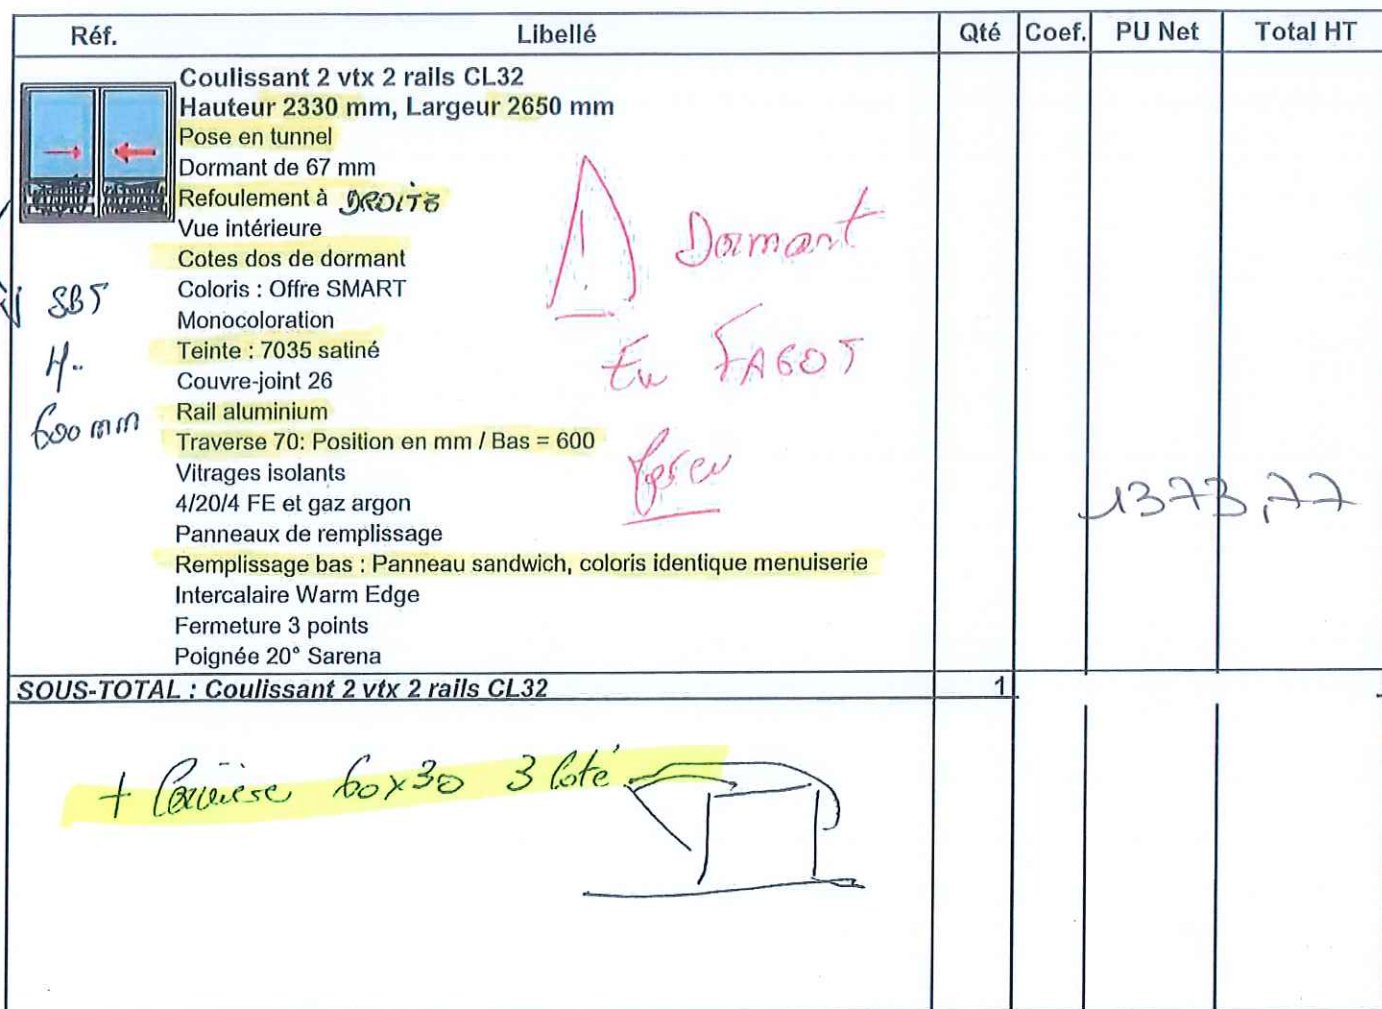 Réf. Libellé Qté Coef. PU Net Total HT
Coulissant 2 vtx 2 rails CL32
Hauteur 2330 mm, Largeur 2650 mm
Pose en tunnel
Dormant de 67 mm
Refoulement à DROITE
Vue intérieure
Cotes dos de dormant
Coloris : Offre SMART
Monocoloration
Teinte : 7035 satiné
Couvre-joint 26
Rail aluminium
Traverse 70: Position en mm / Bas = 600
Vitrages isolants
4/20/4 FE et gaz argon
Panneaux de remplissage
Remplissage bas : Panneau sandwich, coloris identique menuiserie
Intercalaire Warm Edge
Fermeture 3 points
Poignée 20° Sarena
SBT
H..
600 mm
! Dormant
En FAGOT
1373,77
SOUS-TOTAL : Coulissant 2 vtx 2 rails CL32 1
+ 60x30 3 Coté